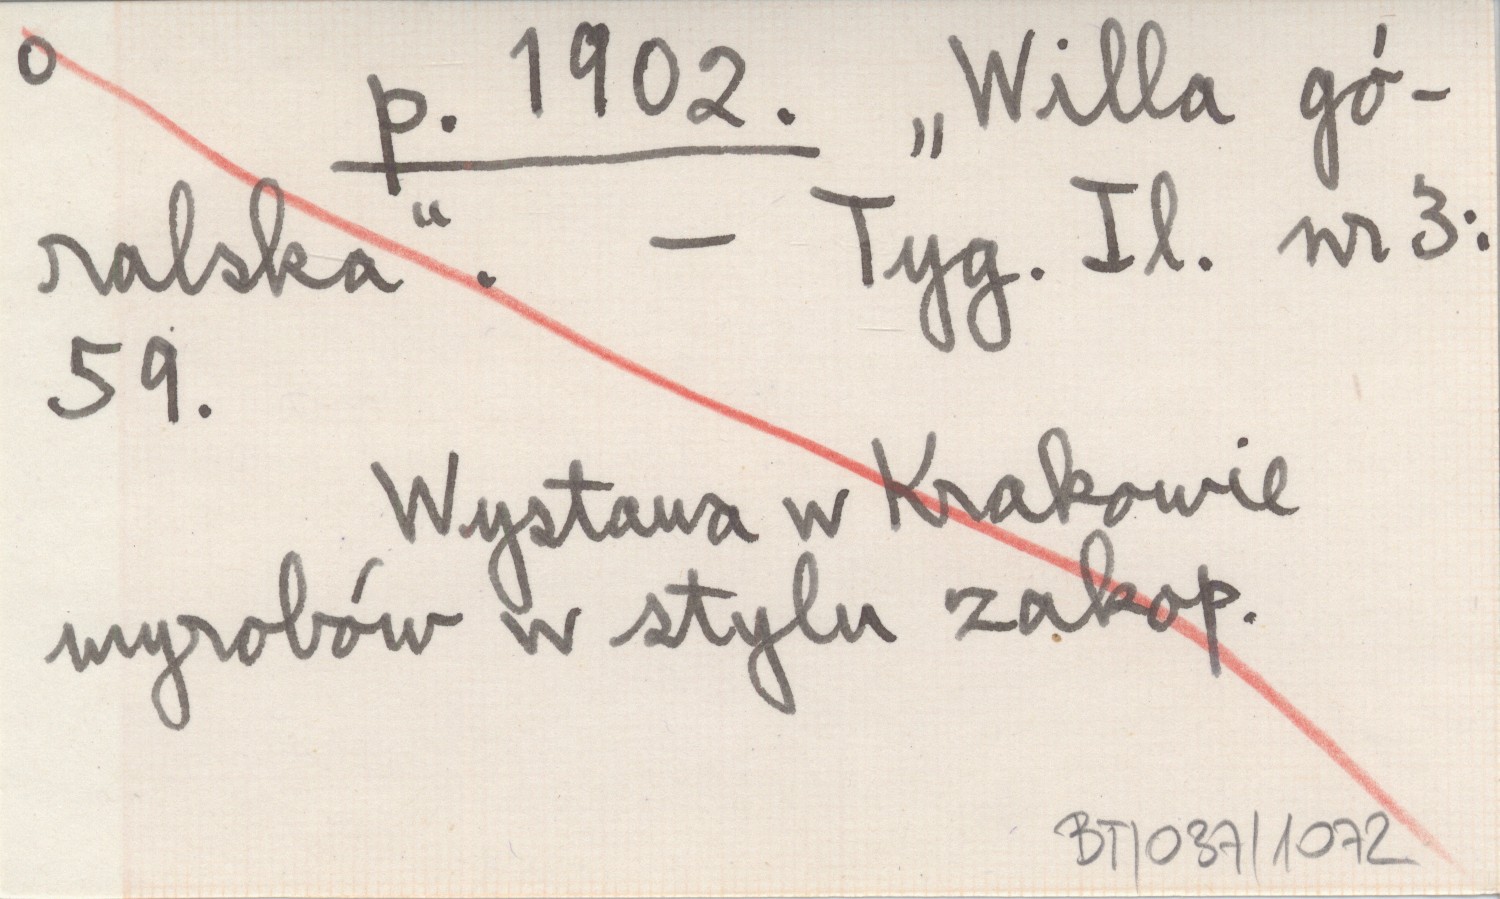 o p. 1902. „Willa gó-
ralska“. — Tyg. Il. nr 3:
59.
Wystawa w Krakowie
wyrobów w stylu zakop.
BT/037/1072